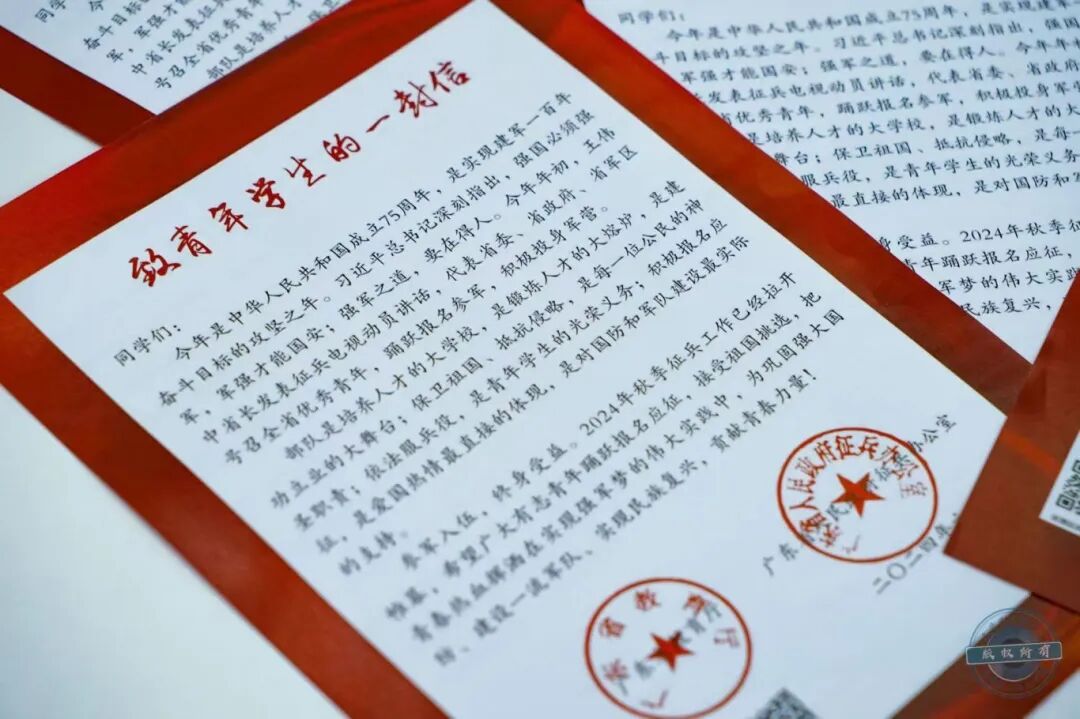 奋斗目标
军,军强才能
中省长发表征兵
号召全省优秀青年
部队是培养人才
致青年学生的一封信
同学们:
今年是中华人民共和国成立75周年,是实现建军一百年
奋斗目标的攻坚之年。习近平总书记深刻指出,强国必须强
军,军强才能国安;强军之道,要在得人。今年年初,王伟
中省长发表征兵电视动员讲话,代表省委、省政府、省军区
号召全省优秀青年,踊跃报名参军,积极投身军营。
部队是培养人才的大学校,是锻炼人才的大熔炉,是建
功立业的大舞台;保卫祖国、抵抗侵略,是每一位公民的神
圣职责;依法服兵役,是青年学生的光荣义务;积极报名应
征,是爱国热情最直接的体现,是对国防和军队建设最实际
的支持。
参军入伍,终身受益。2024年秋季征兵工作已经拉开
帷幕,希望广大有志青年踊跃报名应征,接受祖国挑选,把
青春热血挥洒在实现强军梦的伟大实践中,为巩固强大国
防、建设一流军队、实现民族复兴,贡献青春力量!
省教育厅
广东 育厅
省人民政府征兵办公室
广东 办公室
二〇二四年
同学们:
今年是中华人民共和国成立75周年,是实现建
斗目标的攻坚之年。习近平总书记深刻指出,强国
军强才能国安;强军之道,要在得人。今年年
长发表征兵电视动员讲话,代表省委、省政府
省优秀青年,踊跃报名参军,积极投身军
是培养人才的大学校,是锻炼人才的大
舞台;保卫祖国、抵抗侵略,是每一
服兵役,是青年学生的光荣义务
最直接的体现,是对国防和军
身受益。2024年秋季征
青年踊跃报名应征,
军梦的伟大实践
民族复兴,
蚁所有